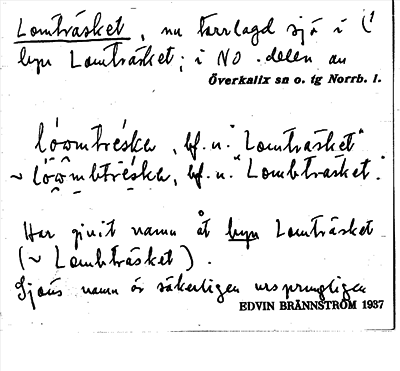 Lomträsket, nu torrlagd sjö i (1
byn Lomträsket; i NO. delen av
Överkalix sn o. tg Norrb. l.
lówmtréska, bf. u. "Lomträsket"
~ lówmbtréska, bf. u. "Lombträsket".
Har givit namn åt byn Lomträsket
(~ Lombträsket).
Sjöns namn är säkerligen ursprungligen
EDVIN BRÄNNSTRÖM 1937